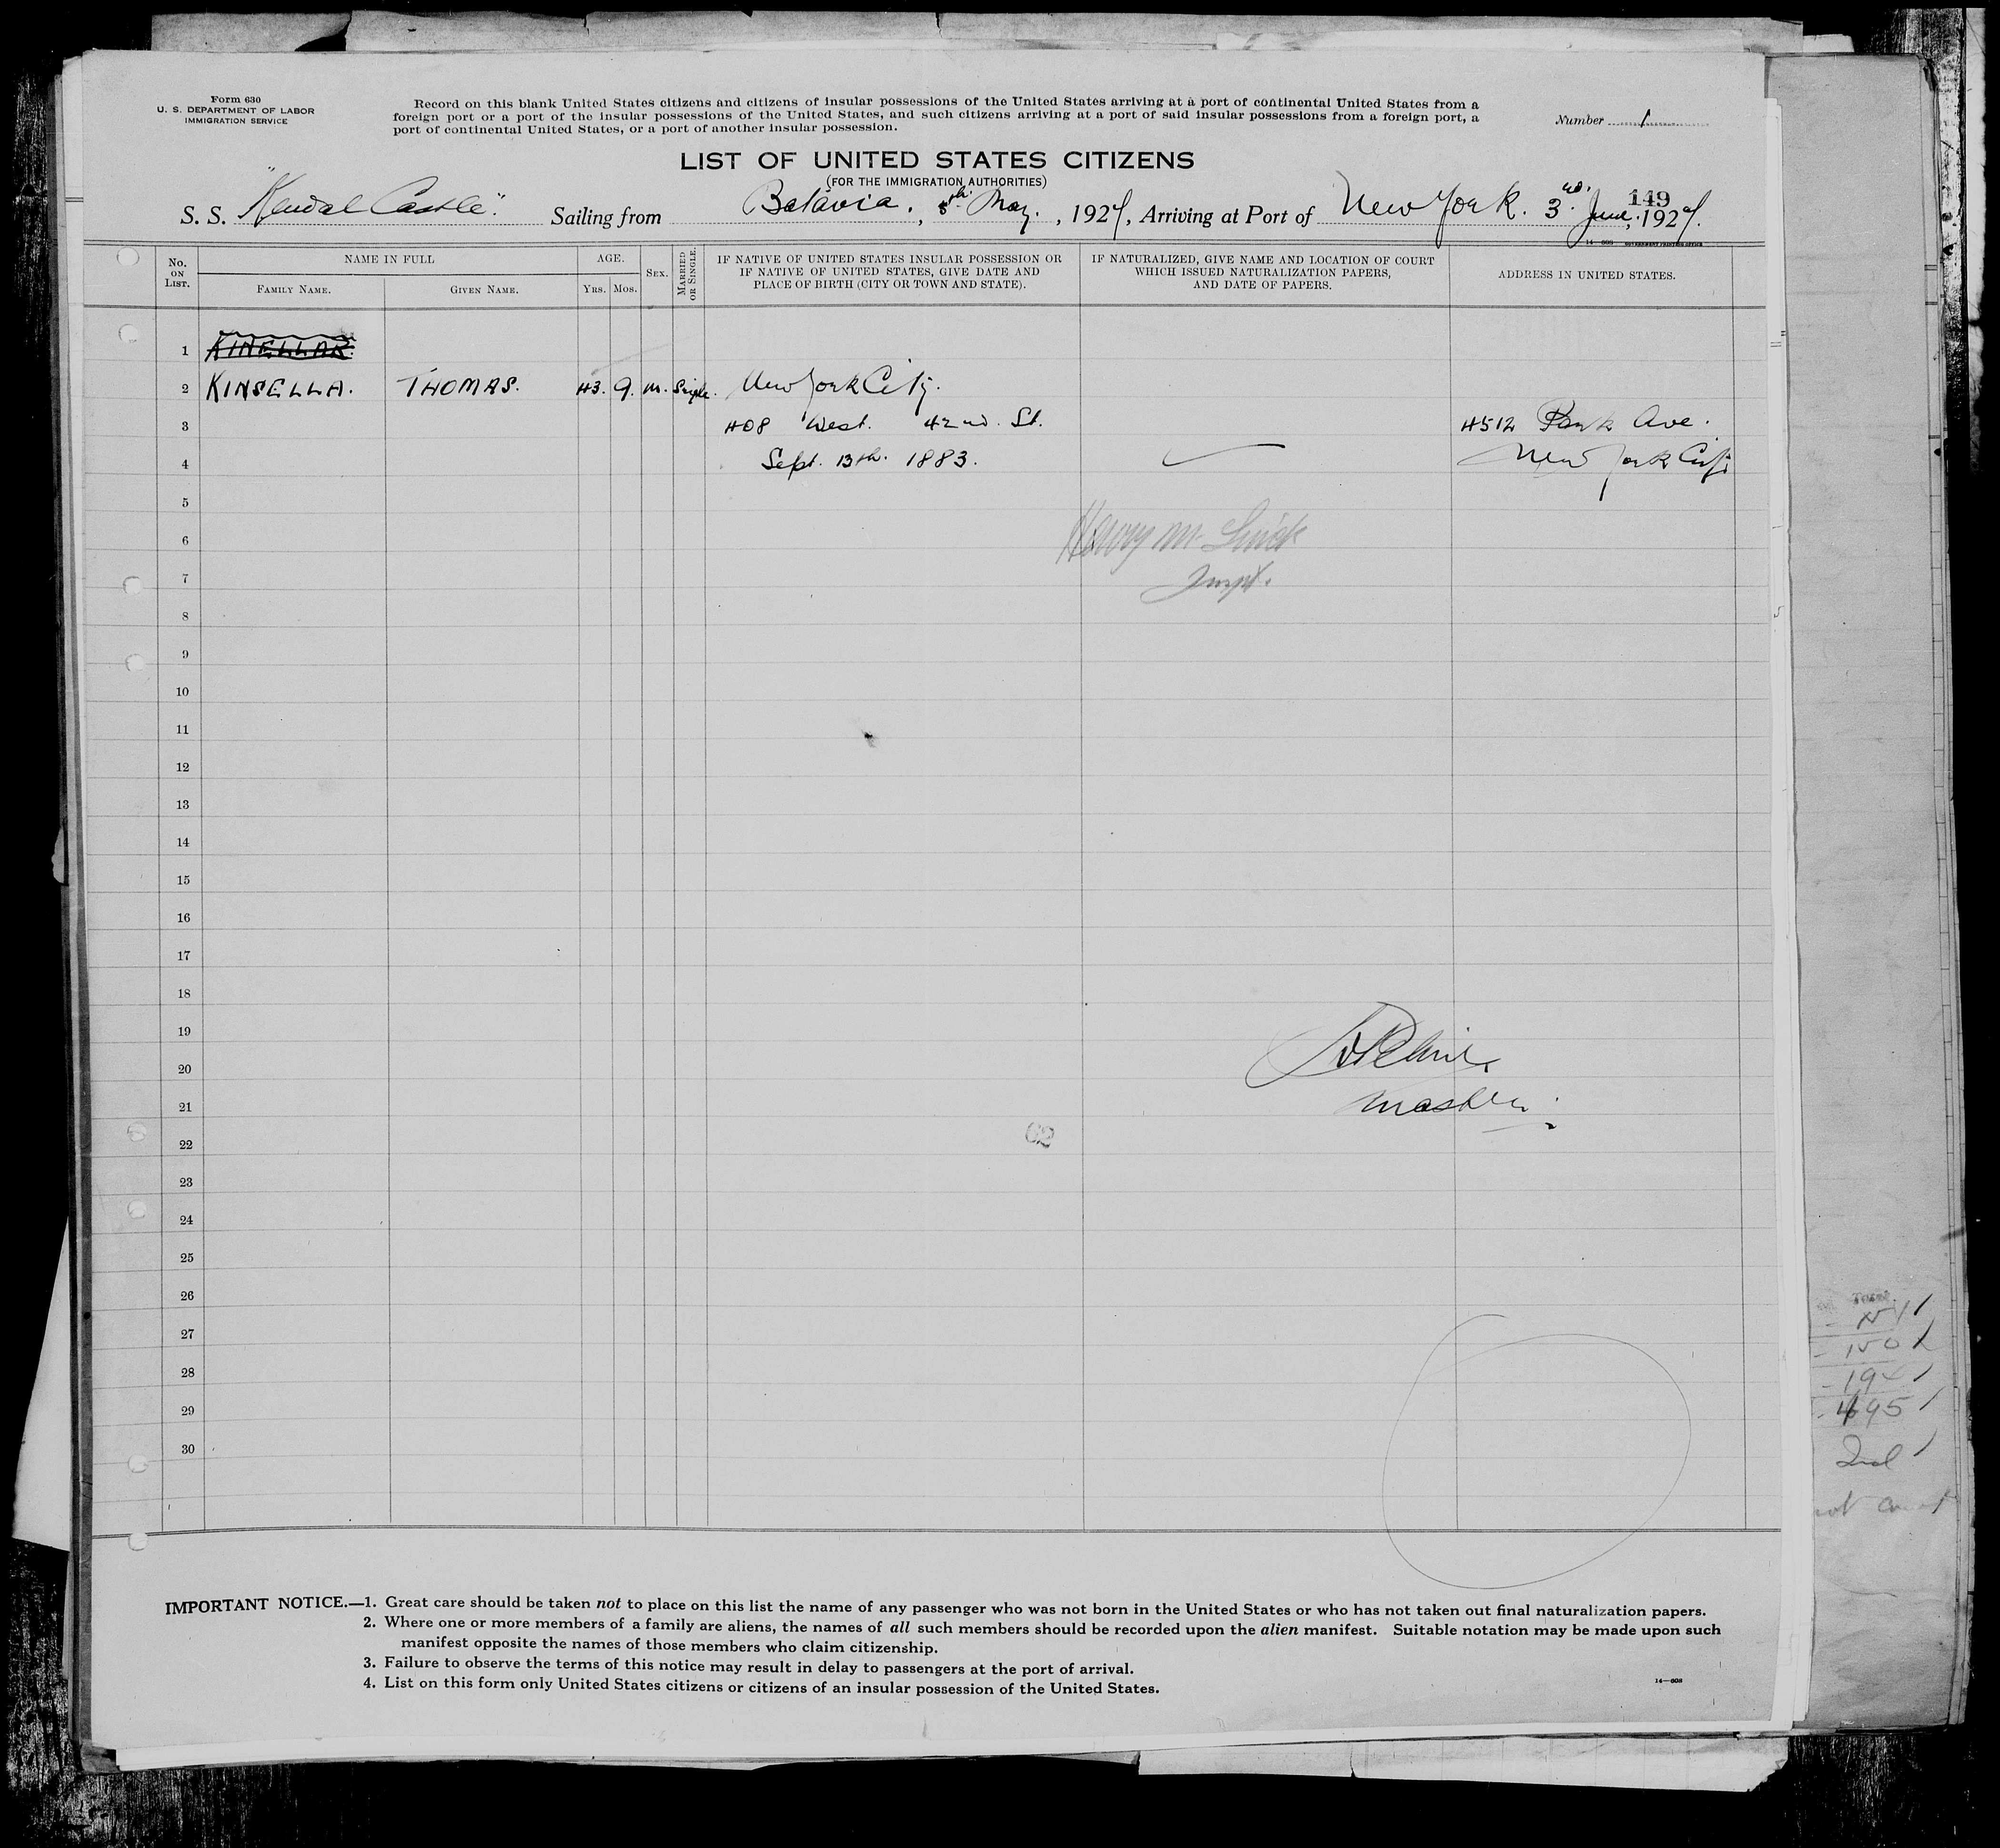 Form 630
U. S. DEPARTMENT OF LABOR
IMMIGRATION SERVICE
Record on this blank United States citizens and citizens of insular possessions of the United States arriving at a port of continental United States from a
foreign port or a port of the insular possessions of the United States, and such citizens arriving at a port of said insular possessions from a foreign port, a
port of continental United States, or a port of another insular possession.
Number 1
LIST OF UNITED STATES CITIZENS
(FOR THE IMMIGRATION AUTHORITIES)
149
S. S. "Kendal Castle". Sailing from Batavia., 5th May., 1927, Arriving at Port of New York. 3rd. June, 1927.
14—608 GOVERNMENT PRINTING OFFICE
No. ON LIST.
NAME IN FULL
FAMILY NAME. GIVEN NAME.
AGE.
YRS. MOS.
SEX.
MARRIED OR SINGLE.
IF NATIVE OF UNITED STATES INSULAR POSSESSION OR
IF NATIVE OF UNITED STATES, GIVE DATE AND
PLACE OF BIRTH (CITY OR TOWN AND STATE).
IF NATURALIZED, GIVE NAME AND LOCATION OF COURT
WHICH ISSUED NATURALIZATION PAPERS,
AND DATE OF PAPERS.
ADDRESS IN UNITED STATES.
1 KINELLAR.
2 KINSELLA. THOMAS. 43. 9. M. Single. New York City.
3 408 West. 42nd. St. 4512 Park Ave.
4 Sept. 13th. 1883. New York City
5
6 Henry M.
7 Inspt.
8
9
10
11
12
13
14
15
16
17
18
19
20
21 Master.
22 62
23
24
25
26
27
28
29
30
495
2nd
not
IMPORTANT NOTICE.—1. Great care should be taken not to place on this list the name of any passenger who was not born in the United States or who has not taken out final naturalization papers.
2. Where one or more members of a family are aliens, the names of all such members should be recorded upon the alien manifest. Suitable notation may be made upon such
manifest opposite the names of those members who claim citizenship.
3. Failure to observe the terms of this notice may result in delay to passengers at the port of arrival.
4. List on this form only United States citizens or citizens of an insular possession of the United States.
14—608